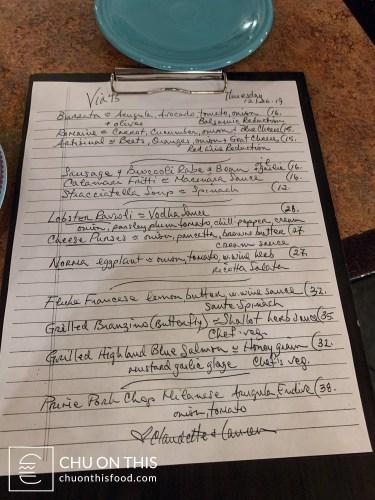 Via 45
Thursday
12/26.19
Burrata = Arugula, Avocado, tomato, onion (16.
+ olives Balsamic Reduction
Romaine = Carrot, Cucumber, onion + Blue Cheese (15.
Artisinal = Beets, Oranges, onion + Goat Cheese (15.
Red wine Reduction
Sausage + Broccoli Rabe + Bean = garlic (16.
Calamari Fritti = Marinara Sauce (16.
Stracciatella Soup = Spinach (12.
Lobster Ravioli = Vodka Sauce (28.
onion, parsley, plum tomato, chili pepper, cream
Cheese Purses = onion, pancetta, brown butter (27.
cream sauce
Norma eggplant = onion, tomato, w. wine herb (27.
Ricotta Salata
Fluke Francese lemon butter, w. wine sauce (32.
Saute Spinach
Grilled Branzino (Butterfly) = Shallot herb sauce (35
Chef's veg.
Grilled Highland Blue Salmon = Honey grain (32.
mustard garlic glaze Chef's veg.
Prime Pork Chop Milanese Arugula Endive (38.
onion, tomato
Claudette + Lauren
CHU ON THIS
chuonthisfood.com